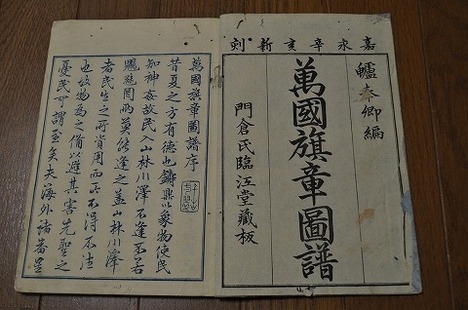 嘉永辛亥新刻
鱸奉卿編
萬國旗章圖譜
門倉氏臨江堂藏板
萬國旗章圖譜序
昔夏之方有德也鑄鼎以象物使民
知神姦故民入山林川澤不逢不若
魑魅罔兩莫能逢之蓋山林川澤
者民生之所資用而不得不
也故物為之備以避其害先聖之
憂民可謂至矣夫海外諸番星